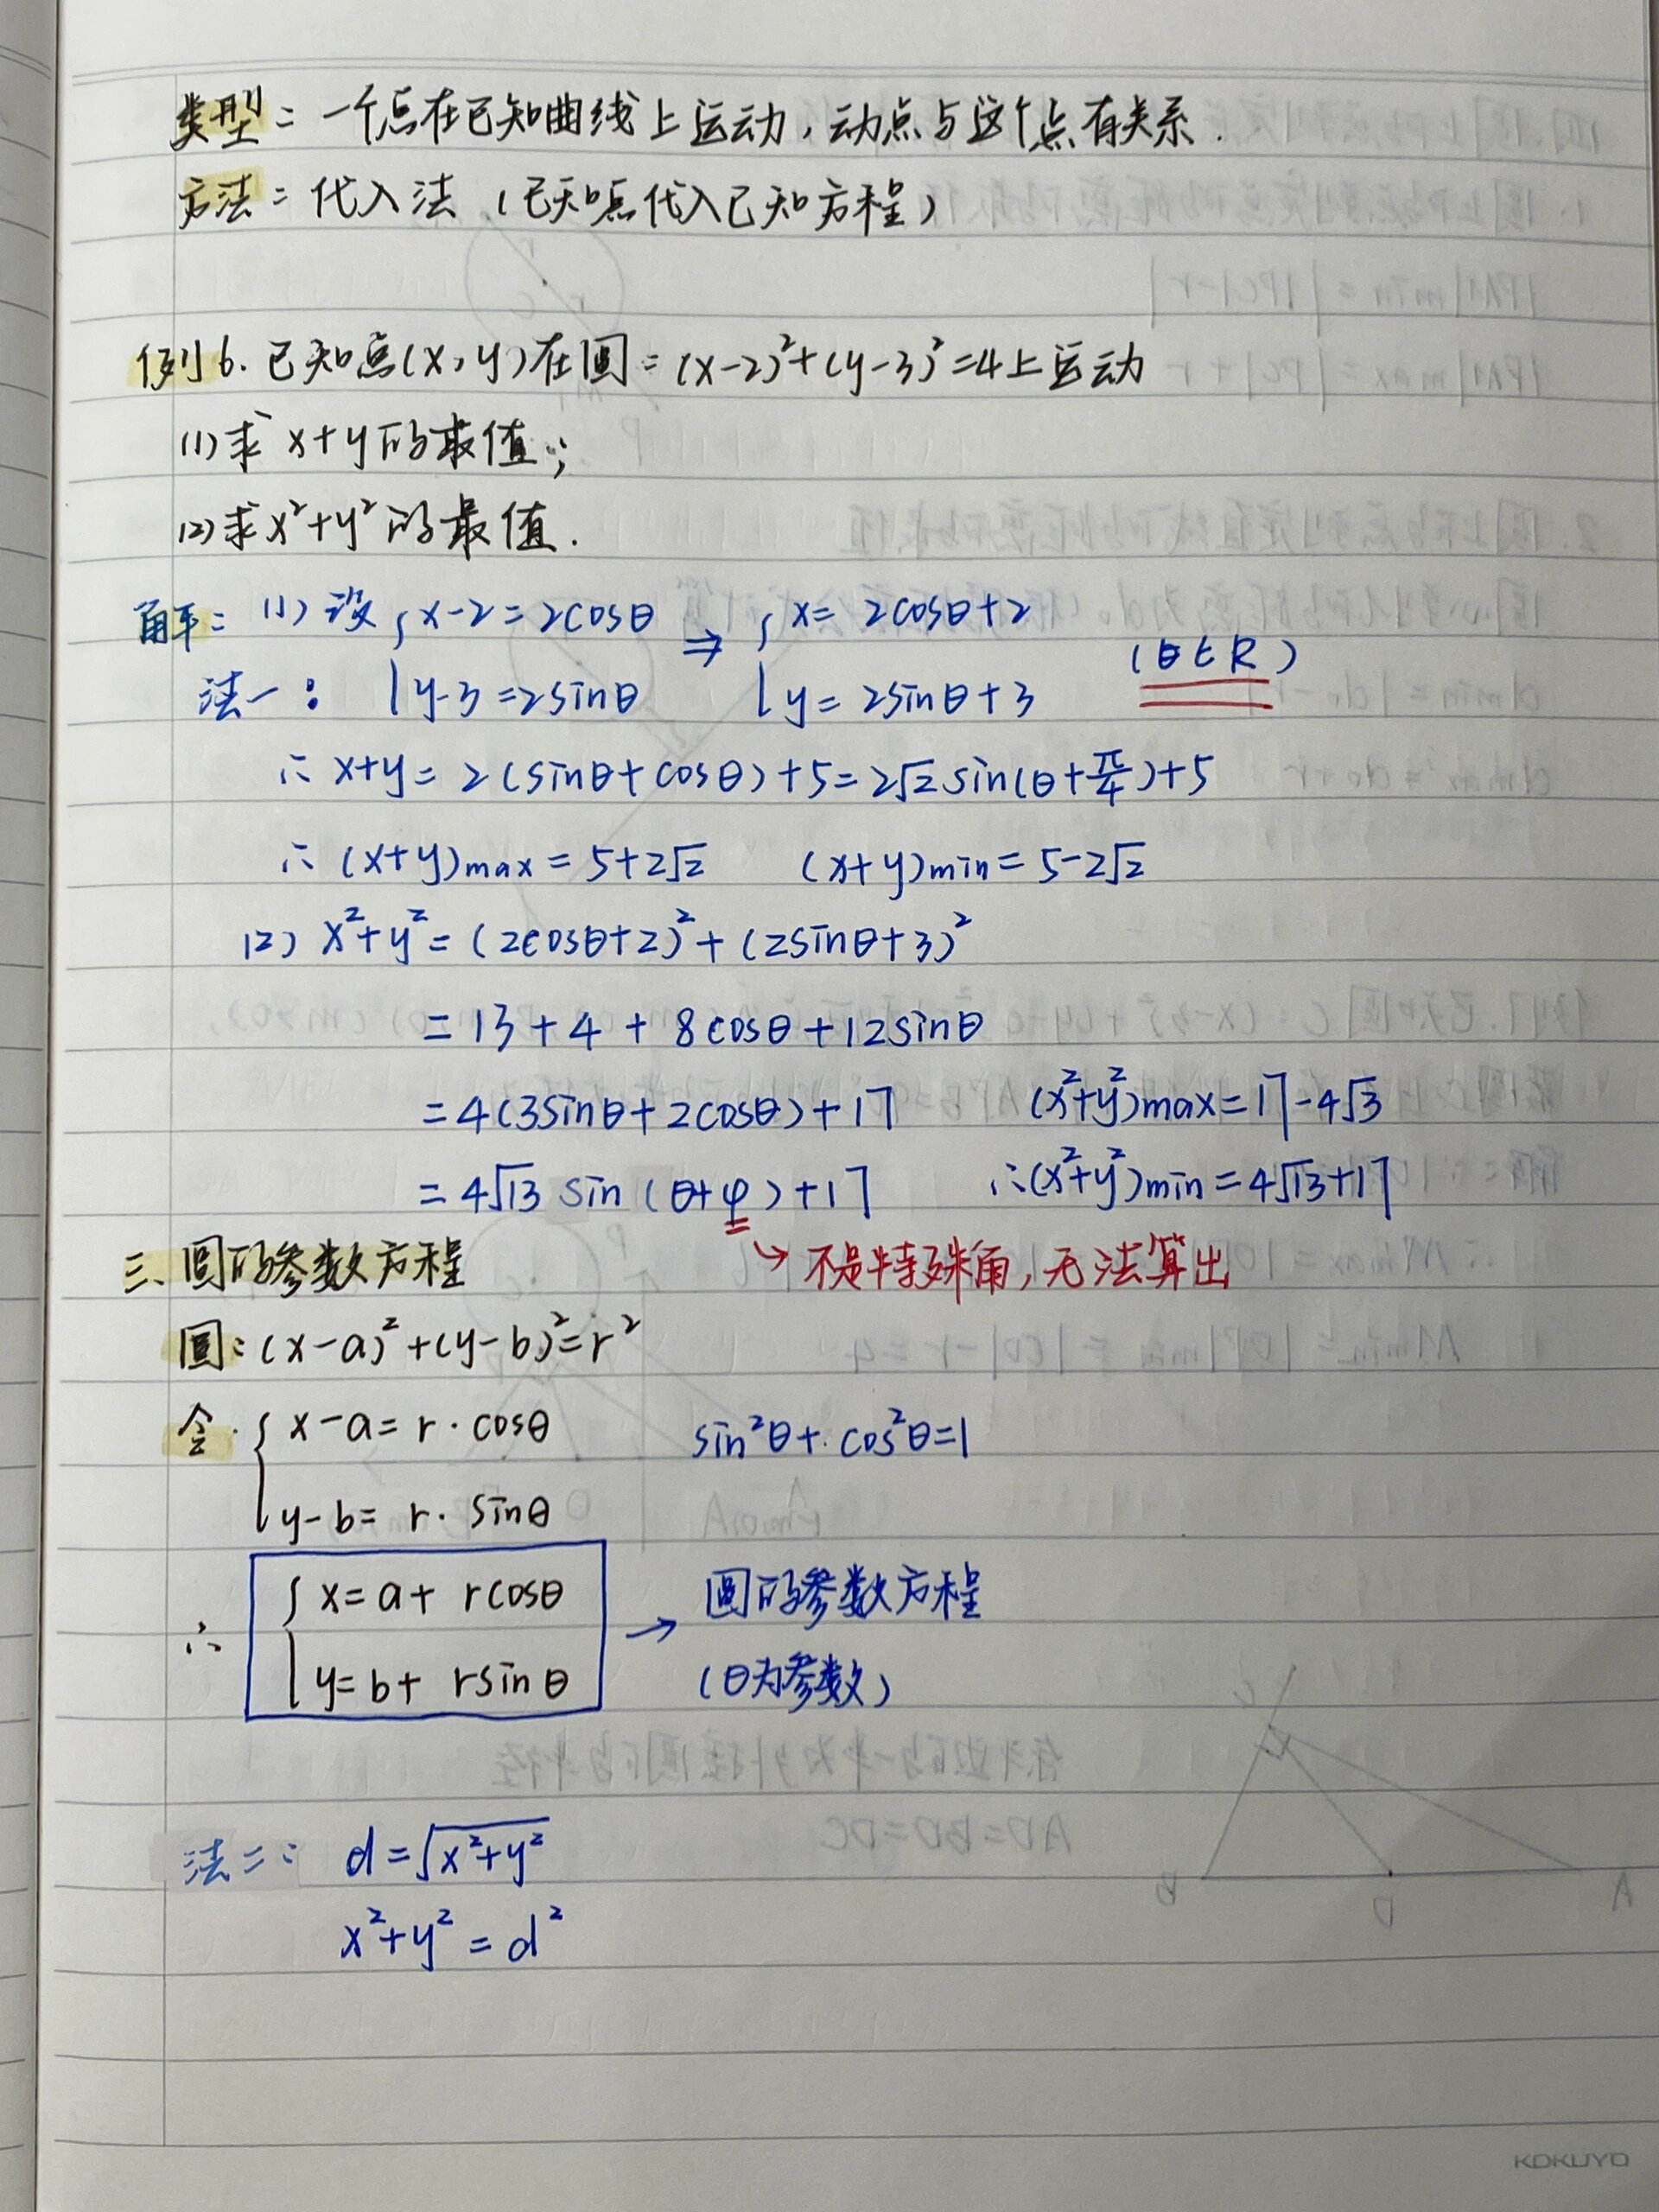 类型：一个点在已知曲线上运动，动点与这个点有关系.
方法：代入法（已知点代入已知方程）
例6. 已知点(x,y)在圆：(x-2)²+(y-3)²=4上运动
(1)求 x+y的最值；
(2)求x²+y²的最值.
解：(1)设 { x-2=2cosθ ⇒ { x= 2cosθ+2
法一： y-3=2sinθ y= 2sinθ+3 (θ∈R)
∴ x+y= 2(sinθ+cosθ)+5=2√2sin(θ+π/4)+5
∴ (x+y)max = 5+2√2 (x+y)min=5-2√2
(2) x²+y²=(2cosθ+2)²+(2sinθ+3)²
=13+4+8cosθ+12sinθ
=4(3sinθ+2cosθ)+17 (x²+y²)max=17-4√3
=4√13 sin(θ+φ)+17 ∴(x²+y²)min=4√13+17
→ 不是特殊角，无法算出
三、圆的参数方程
圆：(x-a)²+(y-b)²=r²
令 { x-a=r·cosθ sin²θ+cos²θ=1
y-b= r·sinθ
∴ { x=a+ rcosθ → 圆的参数方程
y=b+ rsinθ (θ为参数)
法二： d=√x²+y²
x²+y²=d²
KOKUYO